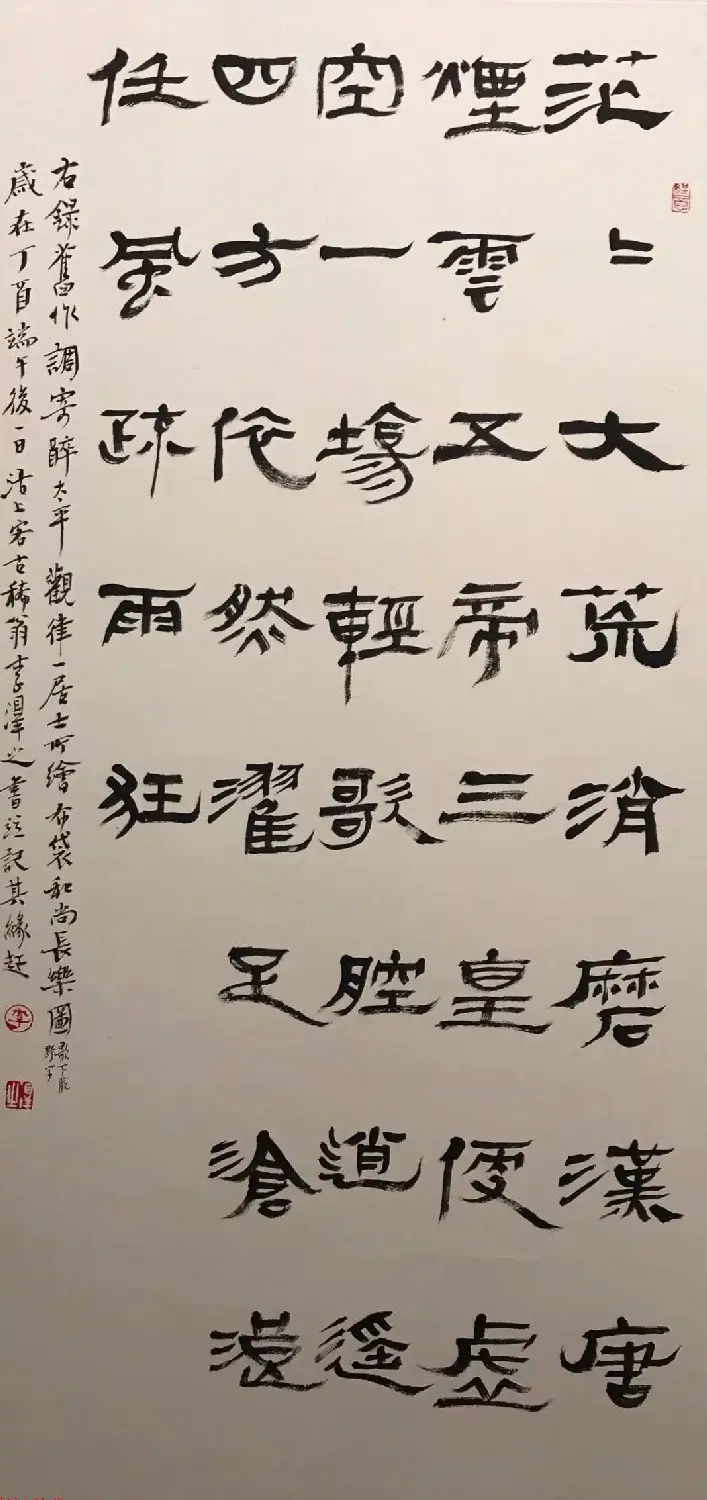 茫〻大荒消磨漢唐
煙雲五帝三皇便虛
空一場輕歌腔逍遙
四方依然濯足滄浪
任風疏雨狂
右錄舊作調寄醉太平觀律一居士所繪布袋和尚長樂圖
歌下脫野字
歲在丁酉端午後一日沽上客古稀翁李澤之書並記其緣起
李